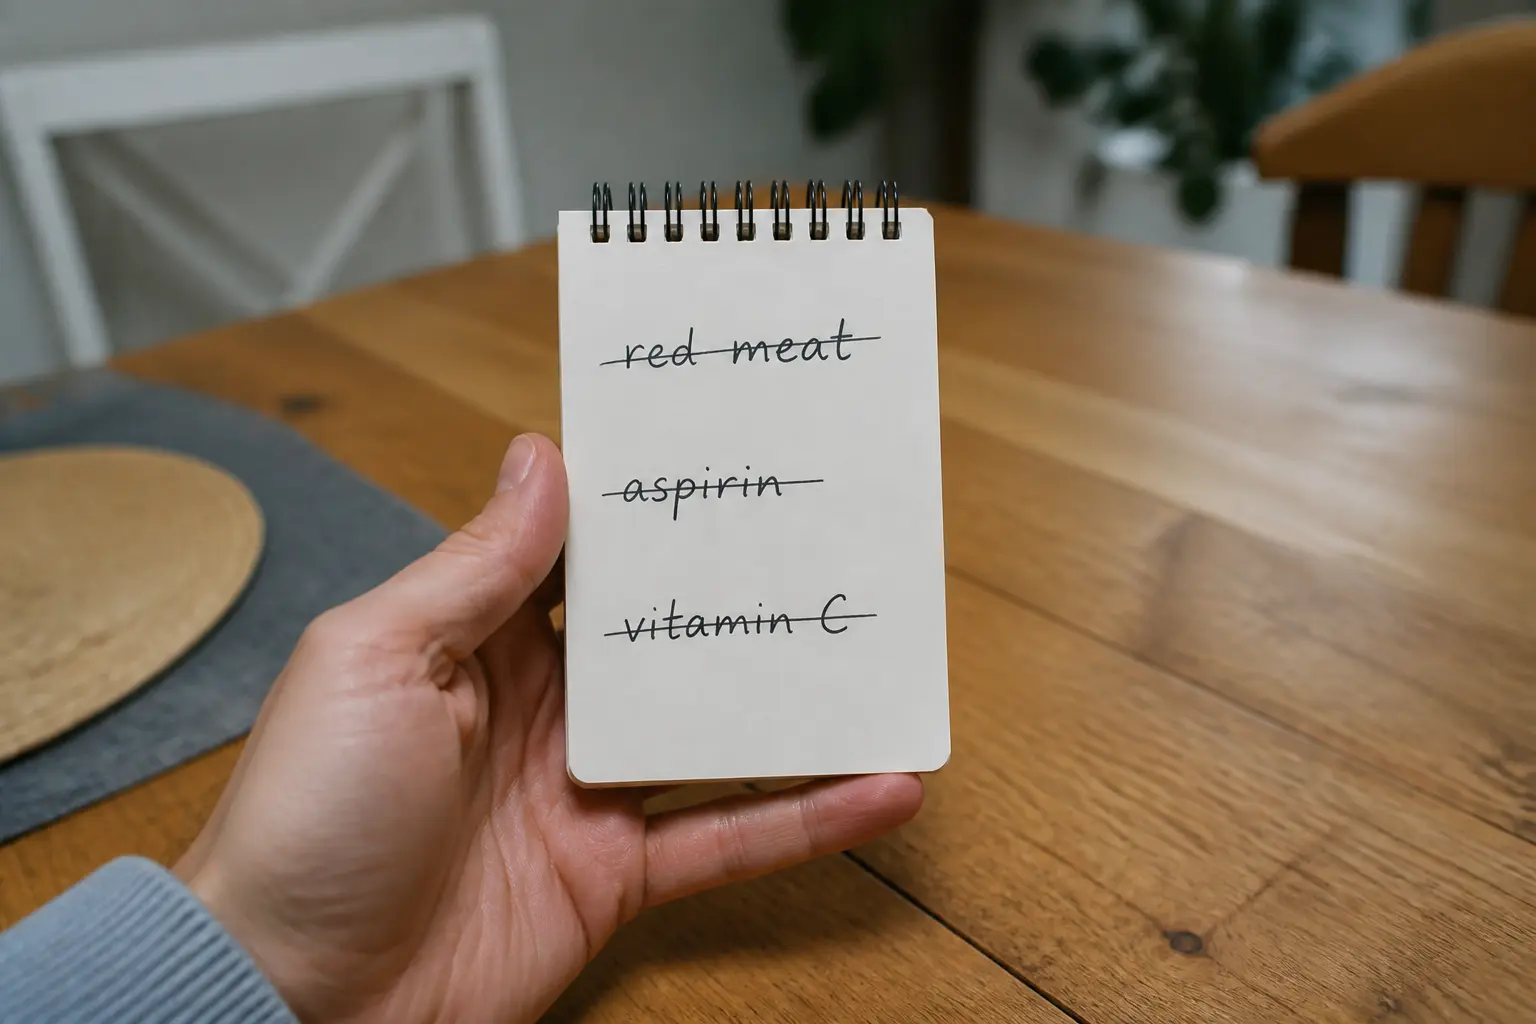 red meat
aspirin
vitamin C